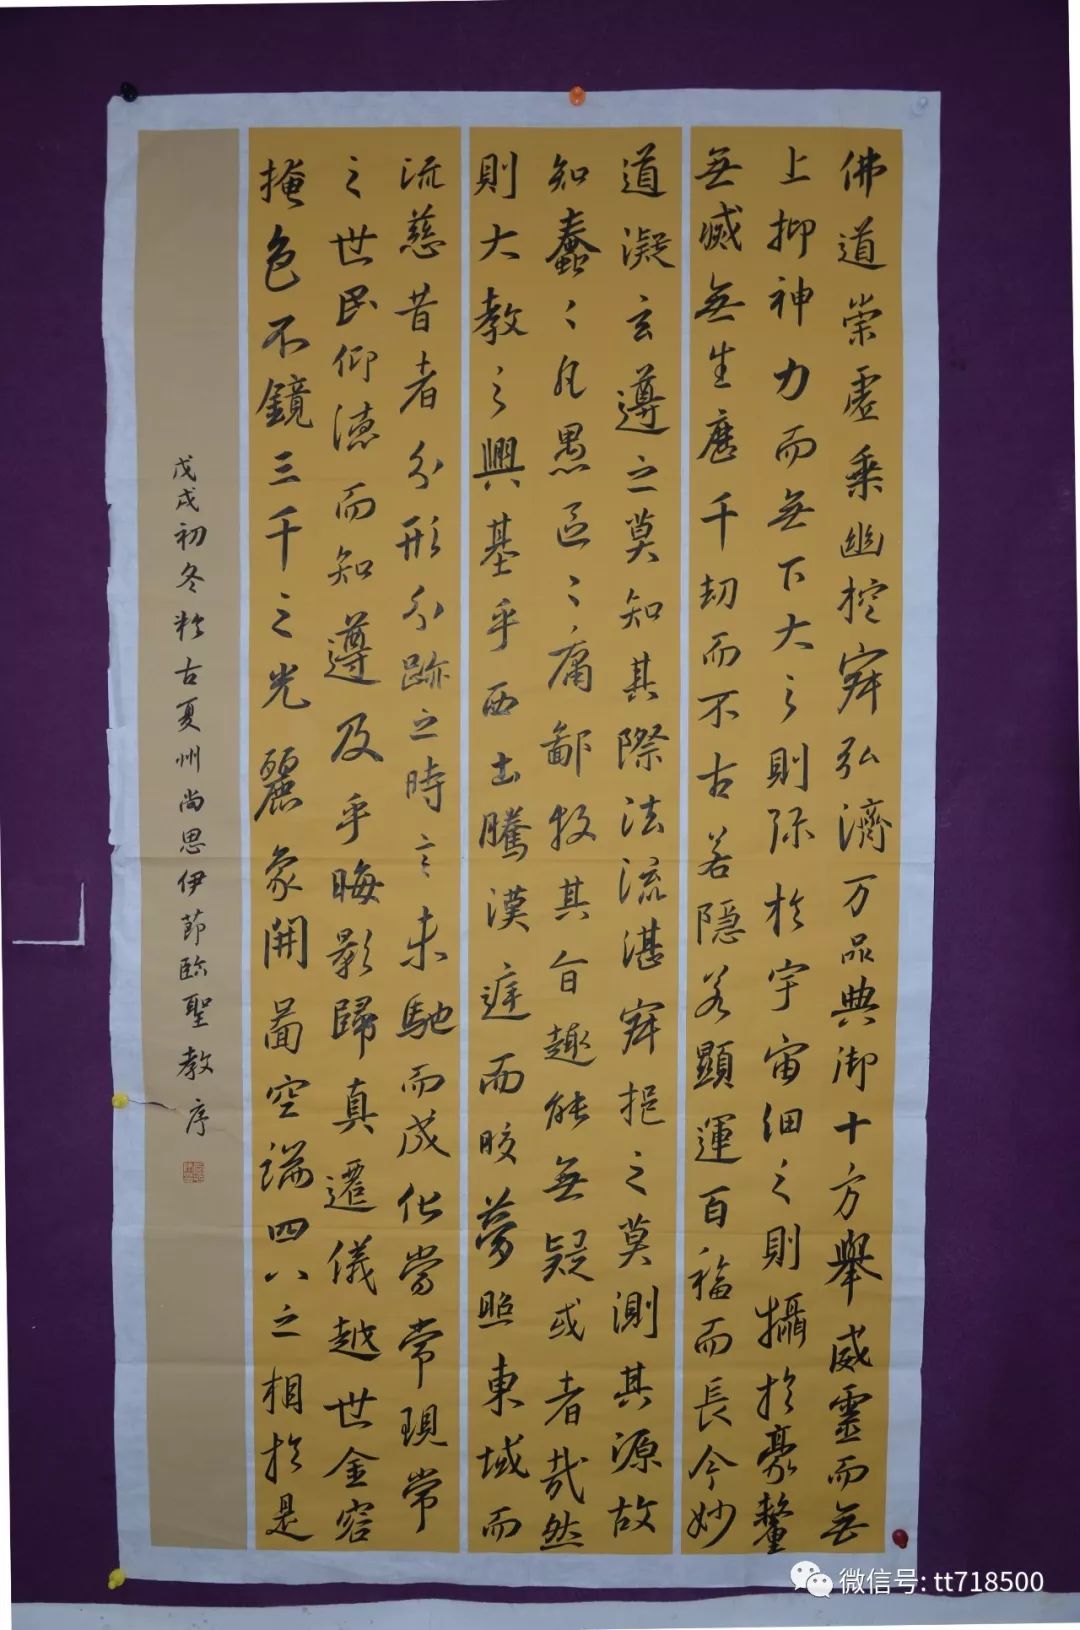 佛道崇虛乘幽控寂弘濟万品典御十方舉威靈而無
上抑神力而無下大之則弥於宇宙細之則攝於豪釐
無滅無生歷千劫而不古若隱若顯運百福而長今妙
道凝玄遵之莫知其際法流湛寂挹之莫測其源故
知蠢〻凡愚區〻庸鄙投其旨趣能無疑或者哉然
則大教之興基乎西土騰漢庭而皎夢照東域而
流慈昔者分形分跡之時言未馳而成化當常現常
之世民仰德而知遵及乎晦影歸真遷儀越世金容
掩色不鏡三千之光麗象開圖空端四八之相於是
戊戌初冬於古夏州尚思伊節臨聖教序
微信号: tt718500